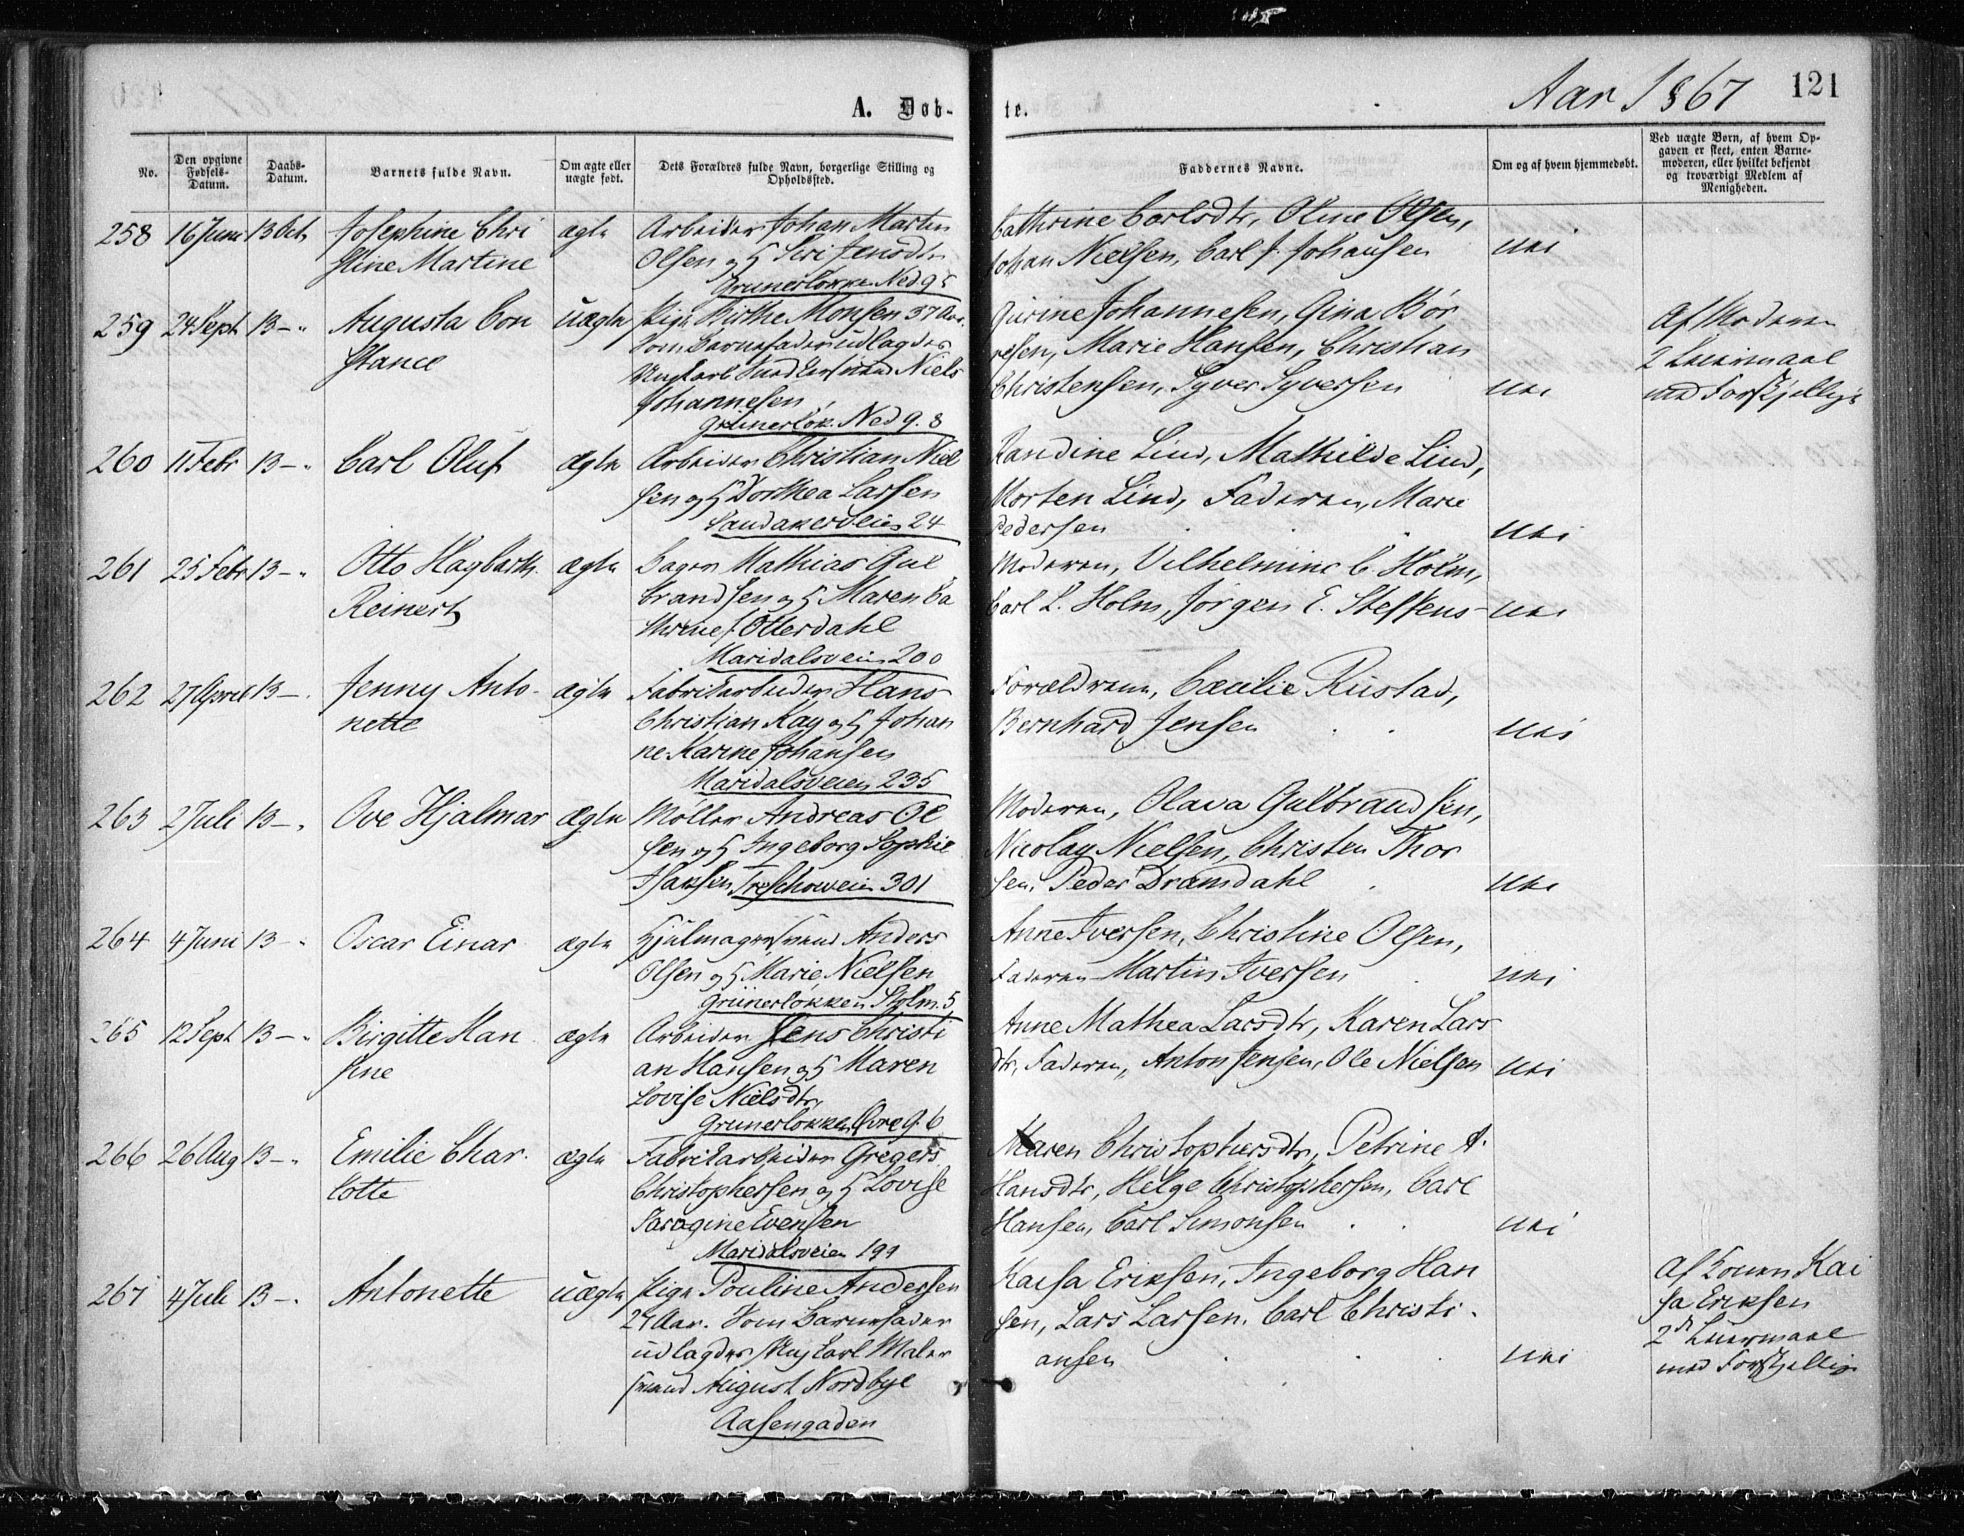 A. Døb-
te.
Aar 1867
121
No.
Den opgivne
Fødsels-
Datum.
Daabs-
Datum.
Barnets fulde Navn.
Om ægte eller
uægte født.
Dets Forældres fulde Navn, borgerlige Stilling og
Opholdssted.
Faddernes Navne.
Om og af hvem hjemmedøbt.
Ved uægte Børn, af hvem Op-
gaven er skeet, enten Barne-
moderen, eller hvilket bekjendt
og troværdigt Medlem af
Menigheden.
258 16 Juni 13 Oct Josephine Chri ægte Arbeider Johan Martin
stine Martine Olsen og H Siri Jensdtr
Grünerløkken Ned 9
Cathrine Carlsdtr, Oline Olsen,
Johan Nielsen, Carl J. Johansen Nei
259 24 Sept 13 -" Augusta Con uægte Pige Birthe Monsen 37 Aar.
stance Som Barnefader udlagdes
Ungkarl Niels
Johannesen,
Grünerløk. Ned 9. 8
Gurine Johannesen, Gina Bör
resen, Marie Hansen, Christian
Christensen, Syver Syversen Nei
Af Moderen
2 Leiermaal
med Forskjellige
260 11 Febr 13 -" Carl Oluf ægte Arbeider Christian Niel
sen og H Dorthea Larsen
Sandakerveien 24
Randine Lind, Mathilde Lind,
Morten Lind, Faderen, Marie
Pedersen Nei
261 25 Febr 13 -" Otto Hagbarth ægte Bager Mathias Gul
Reinert brandsen og H Maren Ca
thrine J Otterdahl
Maridalsveien 200
Moderen, Vilhelmine C. Holm,
Carl L. Holm, Jörgen E. Steffens- Nei
262 27 April 13 -" Jenny Anto- ægte Fabrikarbeider Hans
nette Christian Kay og H Johan
ne Karine Johansen
Maridalsveien 235
Forældrene, Cæcilie Rustad,
Bernhard Jensen Nei
263 2 Juli 13 -" Ove Hjalmar ægte Møller Andreas Ol
sen og H Ingeborg Sophie
Isaksen Treschowveien 301
Moderen, Olava Gulbrandsen,
Nicolay Nielsen, Christen Thor
sen, Peder Dramdahl Nei
264 4 Juni 13 -" Oscar Einar ægte Hjulmagersvend Anders
Olsen og H Marie Nielsen
Grünerløkken Stolm. 5
Anne Iversen, Christine Olsen,
Faderen Martin Iversen Nei
265 12 Sept 13 -" Birgitte Han ægte Arbeider Jens Christi
sine an Hansen og H Maren
Lovise Nielsdtr,
Grunerløkken Øvre 9. 6
Anne Mathea Larsdtr, Karen Lars
dtr, Faderen, Anton Jensen, Ole Nielsen Nei
266 26 Aug 13 -" Emilie Char ægte Fabrikarbeider Gregers
lotte Christophersen og H Lovise
Saragine Evensen
Maridalsveien 199
Maren Christophersdtr, Petrine A.
Hansdtr, Helge Christophersen, Carl
Hansen, Carl Simonsen Nei
267 4 Juli 13 -" Antonette uægte Pige Pouline Andersen
Aar. Som Barnefader
udlagdes Ungkarl Maler
svend August Nordbye
Aasengaden
Kaisa Eriksen, Ingeborg Han
sen, Lars Larsen, Carl Christi-
ansen Nei
Af Konen Kai
sa Eriksen
2det Leiermaal
med Forskjellig